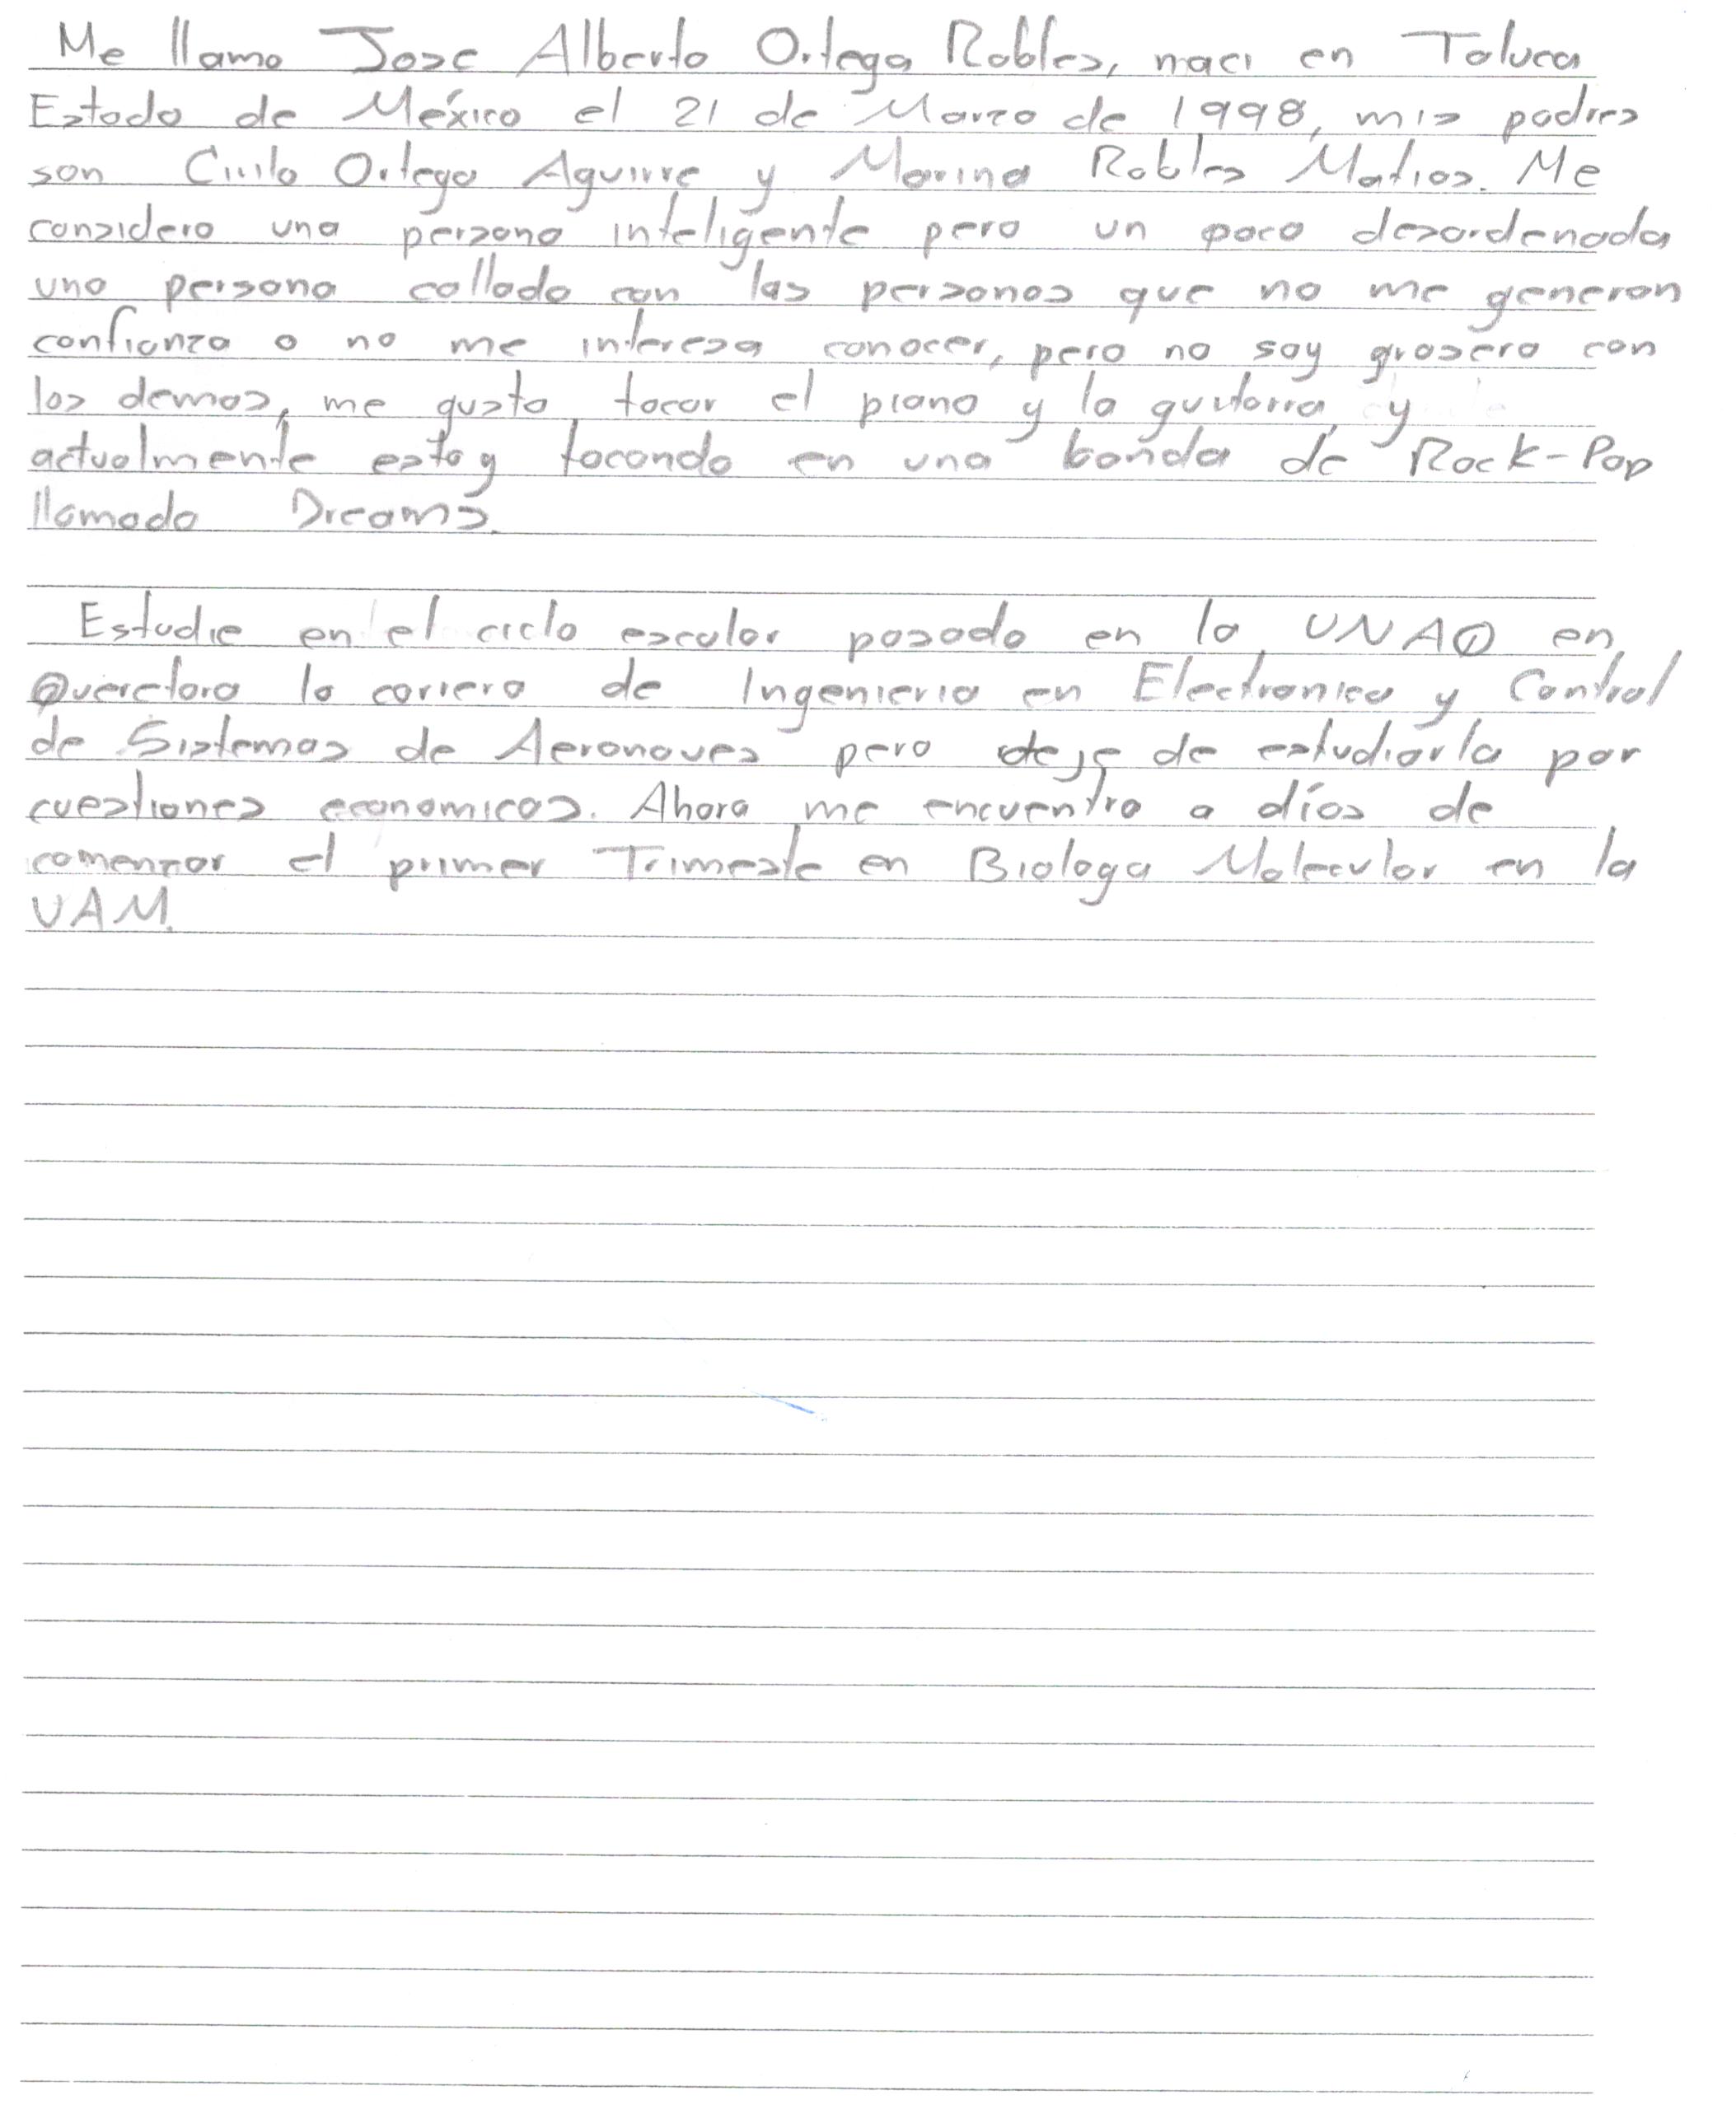 Me llamo Jose Alberto Ortega Robles, naci en Toluca
Estado de México el 21 de Marzo de 1998, mis padres
son Cirilo Ortega Aguirre y Marina Robles Matias. Me
considero una persona inteligente pero un poco desordenada
una persona callada con las personas que no me generan
confianza o no me interesa conocer, pero no soy grosero con
los demas, me gusta tocar el piano y la guitarra y
actualmente estoy tocando en una banda de Rock-Pop
llamada Dreams.
Estudie en el ciclo escolar pasado en la UNAQ en
Queretaro la carrera de Ingenieria en Electronica y Control
de Sistemas de Aeronaves pero deje de estudiarla por
cuestiones economicas. Ahora me encuentro a días de
comenzar el primer Trimestre en Biologa Molecular en la
UAM.